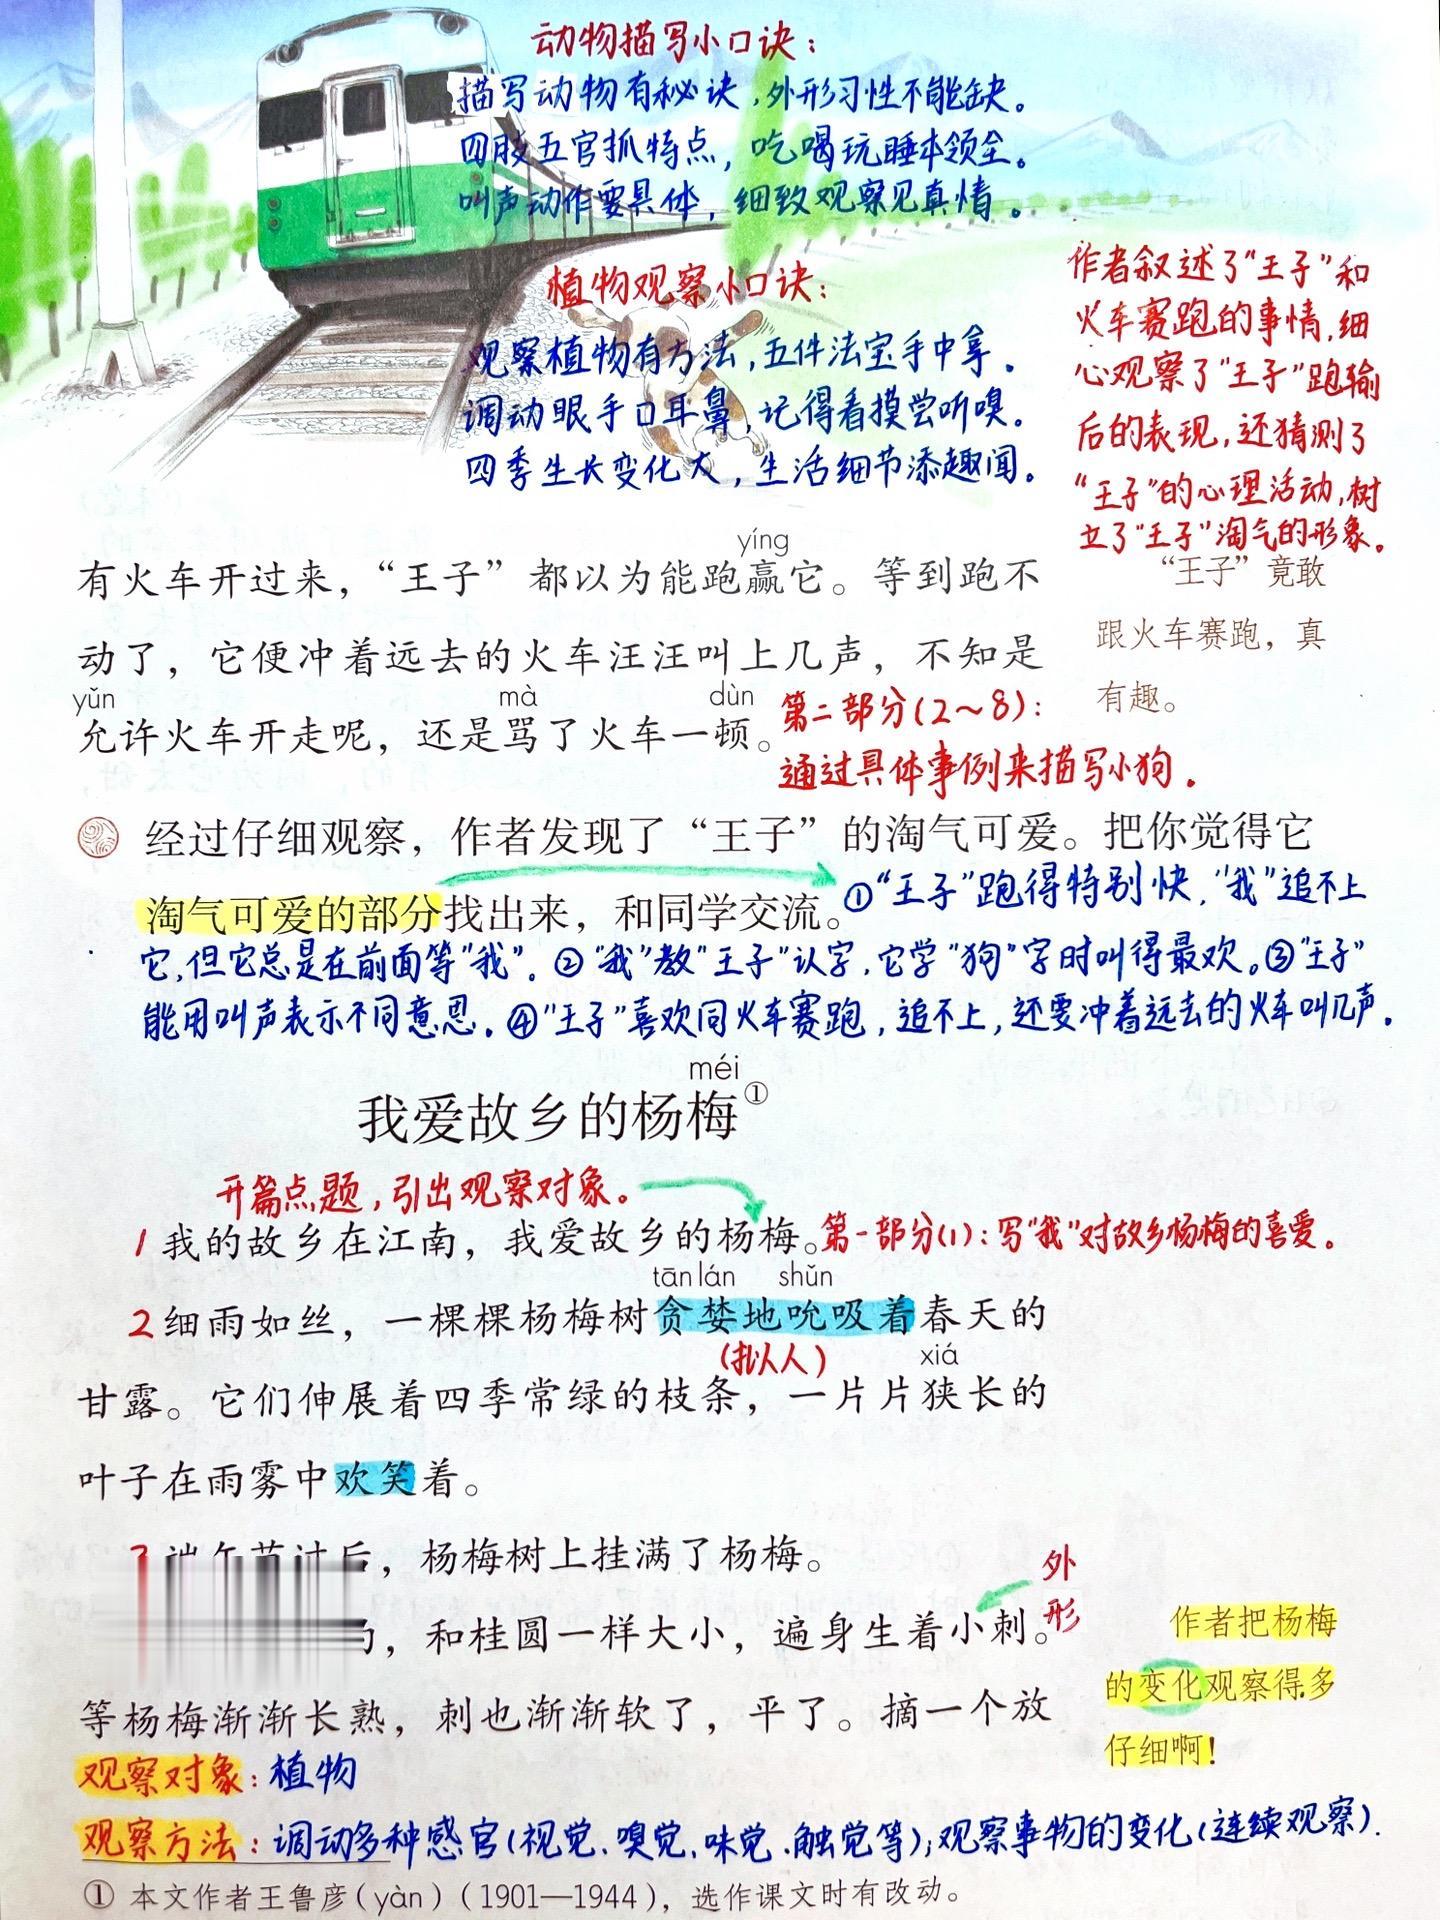 动物描写小口诀：
描写动物有秘诀，外形习性不能缺。
四肢五官抓特点，吃喝玩睡本领全。
叫声动作要具体，细致观察见真情。
植物观察小口诀：
观察植物有方法，五件法宝手中拿。
调动眼手口耳鼻，记得看摸尝听嗅。
四季生长变化大，生活细节添趣闻。
作者叙述了“王子”和
火车赛跑的事情，细
心观察了“王子”跑输
后的表现，还猜测了
“王子”的心理活动，树
立了“王子”淘气的形象。
yíng
有火车开过来，“王子”都以为能跑赢它。等到跑不
动了，它便冲着远去的火车汪汪叫上几声，不知是
yǔn mà dùn
允许火车开走呢，还是骂了火车一顿。
“王子”竟敢
跟火车赛跑，真
有趣。
第二部分(2～8)：
通过具体事例来描写小狗。
经过仔细观察，作者发现了“王子”的淘气可爱。把你觉得它
淘气可爱的部分找出来，和同学交流。
①“王子”跑得特别快，“我”追不上
它，但它总是在前面等“我”。②“我”教“王子”认字，它学“狗”字时叫得最欢。③“王子”
能用叫声表示不同意思。④“王子”喜欢同火车赛跑，追不上，还要冲着远去的火车叫几声。
méi
我爱故乡的杨梅①
开篇点题，引出观察对象。
1 我的故乡在江南，我爱故乡的杨梅。
第一部分(1)：写“我”对故乡杨梅的喜爱。
tān lán shǔn
2 细雨如丝，一棵棵杨梅树贪婪地吮吸着春天的
(拟人) xiá
甘露。它们伸展着四季常绿的枝条，一片片狭长的
叶子在雨雾中欢笑着。
过后，杨梅树上挂满了杨梅。
外形
，和桂圆一样大小，遍身生着小刺。
等杨梅渐渐长熟，刺也渐渐软了，平了。摘一个放
作者把杨梅
的变化观察得多
仔细啊！
观察对象：植物
观察方法：调动多种感官(视觉、嗅觉、味觉、触觉等)；观察事物的变化(连续观察)．
① 本文作者王鲁彦(yàn)(1901—1944)，选作课文时有改动。